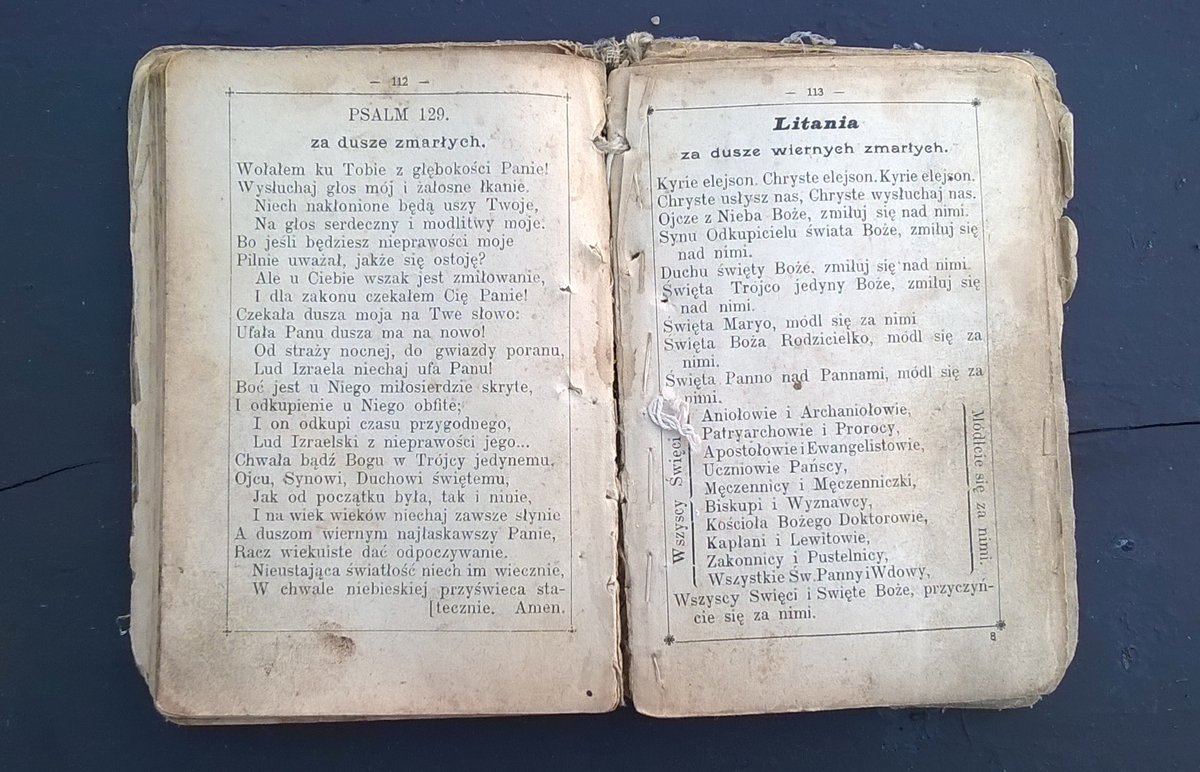 — 112 —
PSALM 129.
za dusze zmarłych.
Wołałem ku Tobie z głębokości Panie!
Wysłuchaj głos mój i żałosne łkanie.
Niech nakłonione będą uszy Twoje,
Na głos serdeczny i modlitwy moje.
Bo jeśli będziesz nieprawości moje
Pilnie uważał, jakże się ostoję?
Ale u Ciebie wszak jest zmiłowanie,
I dla zakonu czekałem Cię Panie!
Czekała dusza moja na Twe słowo:
Ufała Panu dusza ma na nowo!
Od straży nocnej, do gwiazdy poranu,
Lud Izraela niechaj ufa Panu!
Boć jest u Niego miłosierdzie skryte,
I odkupienie u Niego obfite;
I on odkupi czasu przygodnego,
Lud Izraelski z nieprawości jego...
Chwała bądź Bogu w Trójcy jedynemu,
Ojcu, Synowi, Duchowi świętemu,
Jak od początku była, tak i ninie,
I na wiek wieków niechaj zawsze słynie
A duszom wiernym najłaskawszy Panie,
Racz wiekuiste dać odpoczywanie.
Nieustająca światłość niech im wiecznie,
W chwale niebieskiej przyświeca sta-
[tecznie. Amen.
— 113 —
Litania
za dusze wiernych zmarłych.
Kyrie elejson. Chryste elejson. Kyrie elejson.
Chryste usłysz nas, Chryste wysłuchaj nas.
Ojcze z Nieba Boże, zmiłuj się nad nimi.
Synu Odkupicielu świata Boże, zmiłuj się
nad nimi.
Duchu święty Boże, zmiłuj się nad nimi.
Święta Trojco jedyny Boże, zmiłuj się
nad nimi.
Święta Maryo, módl się za nimi
Święta Boża Rodzicielko, módl się za
nimi.
Święta Panno nad Pannami, módl się za
nimi.
Wszyscy Święci
Aniołowie i Archaniołowie,
Patryarchowie i Prorocy,
Apostołowie i Ewangelistowie,
Uczniowie Pańscy,
Męczennicy i Męczenniczki,
Biskupi i Wyznawcy,
Kościoła Bożego Doktorowie,
Kapłani i Lewitowie,
Zakonnicy i Pustelnicy,
Wszystkie Św. Panny i Wdowy,
Módlcie się za nimi.
Wszyscy Swięci i Swięte Boże, przyczyń-
cie się za nimi.
8